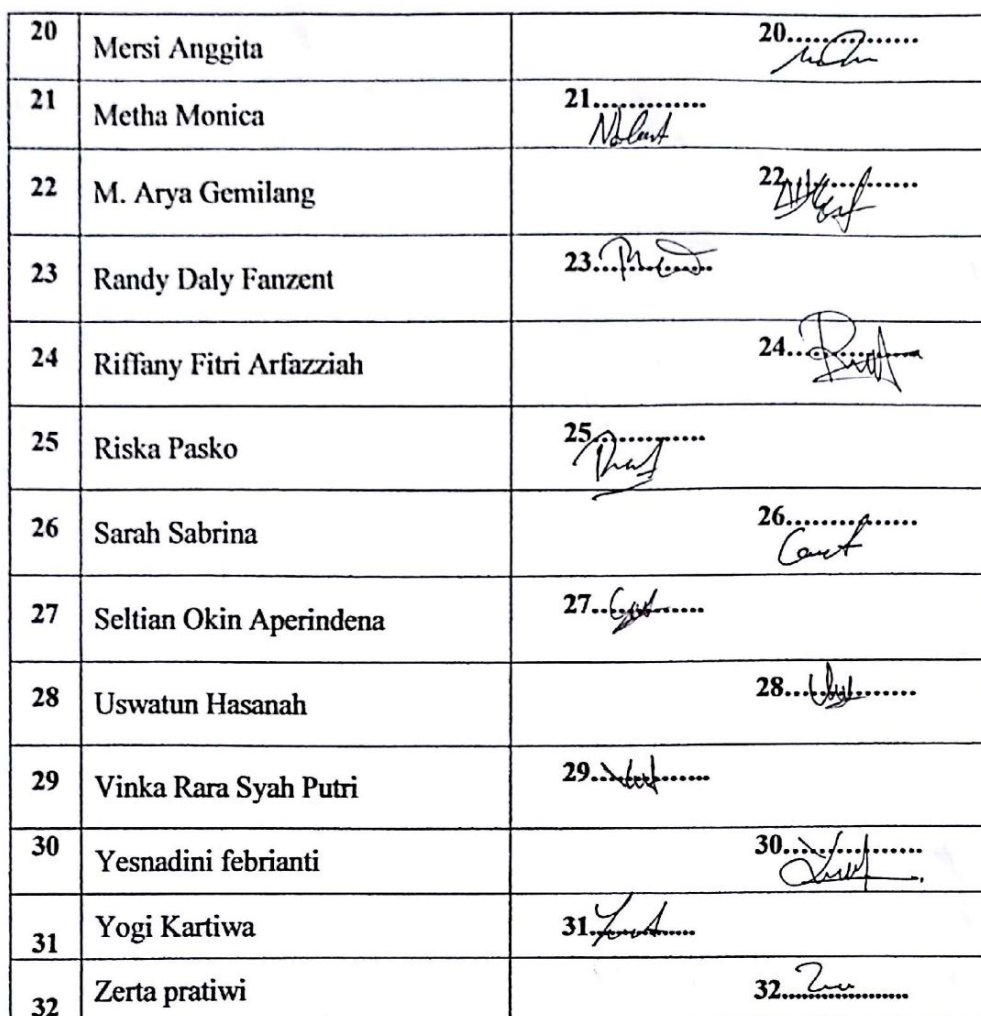 20 Mersi Anggita 20...............
21 Metha Monica 21.............
22 M. Arya Gemilang 22...............
23 Randy Daly Fanzent 23.............
24 Riffany Fitri Arfazziah 24...............
25 Riska Pasko 25.............
26 Sarah Sabrina 26...............
27 Seltian Okin Aperindena 27.............
28 Uswatun Hasanah 28...............
29 Vinka Rara Syah Putri 29.............
30 Yesnadini febrianti 30...............
31 Yogi Kartiwa 31.............
32 Zerta pratiwi 32...............